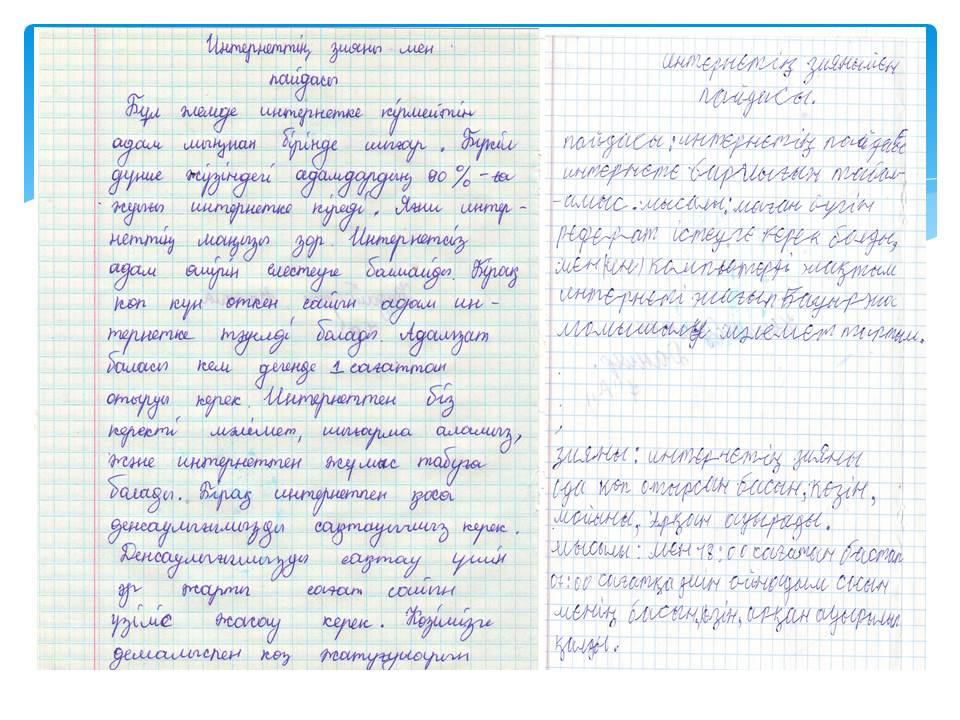 Интернеттің зияны мен
пайдасы
Бұл жемде интернетке кірмейтін
адам мыңнан бірінде шығар. Бүкіл
дүние жүзіндегі адамдардың 90%-ға
жуығы интернетке кіреді. Яғни интер-
неттің маңызы зор. Интернетсіз
адам өмірін елестеуге болмайды. Бірақ
көп күн өткен сайын адам ин-
тернетке тәуелді болады. Адамзат
баласы кем дегенде 1 сағаттан
отыруы керек. Интернеттен біз
керекті мәлімет, шығарма аламыз,
және интернеттен жұмыс табуға
болады. Бірақ интернетпен қоса
денсаулығымызды сақтауымыз керек.
Денсаулығымызды сақтау үшін
әр жарты сағат сайын
үзіліс жасау керек. Көзімізге
демалыспен көз жатуғуларын
интернетің зиянымен
пайдасы.
пайдасы: интернетің пайдасы
интернете барлығын табал-
-амыс. мысалы: маған бүгін
реферат істеуге керек болды,
мен компютерді жақтым
интернеті жағып Бауыржа
момышалы мәлемет тартым.
зияны: интернетің зияны
ода көп отырсан басын, көзін,
мойыны, арқан ауырады.
мысалы: мен 18:00 сағатан бастап
07:00 сағатқа дейін ойнадым сосын
менің басын, көзін, арқан ауырып
қалды.